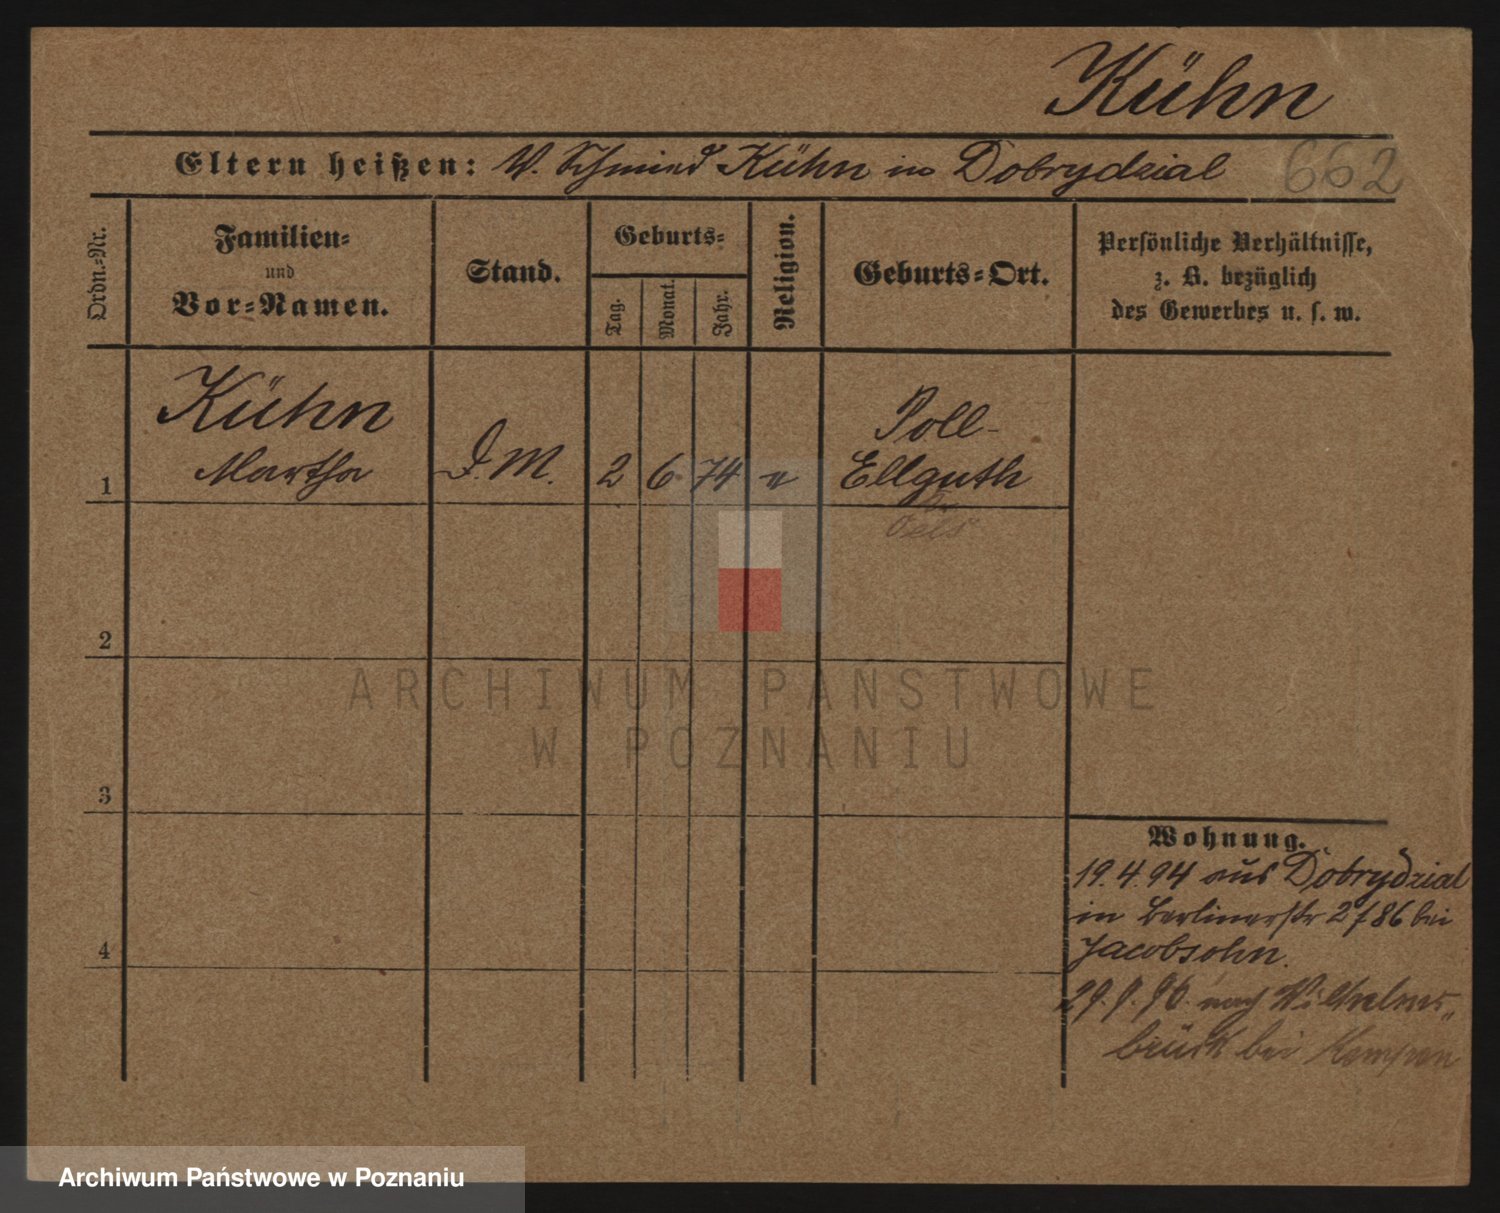 Kühn
Eltern heißen: V. Schmied Kühn in Dobrydzial 662
Ordn.-Nr.
Familien-
und
Vor-Namen.
Stand.
Geburts-
Tag.
Monat.
Jahr.
Religion.
Geburts-Ort.
Persönliche Verhältnisse,
z. B. bezüglich
des Gewerbes u. s. w.
Kühn
Martha
1
D. M. 2 6. 74
Poll-
Ellguth
Oels
2
3
4
ARCHIWUM PAŃSTWOWE
W POZNANIU
Wohnung.
19.4.94 aus Dobrydzial
in Berlinerstr 2 f 86 bei
Jacobsohn.
nach Wilhelms„
brück bei Kempen
Archiwum Państwowe w Poznaniu